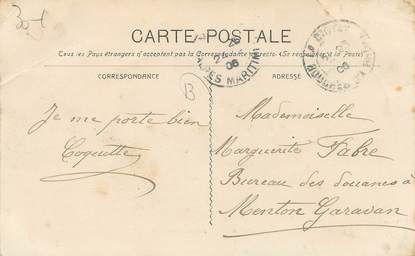 30-f
CARTE POSTALE
Tous les Pays étrangers n'acceptent pas la Correspondance au recto. (Se renseigner à la Poste)
CORRESPONDANCE
ADRESSE
ALPES MARITIMES
LA CIOTAT
B
Je me porte bien
Coquette
Mademoiselle
Marguerite Fabre
Bureau des douanes à
Menton Garavan